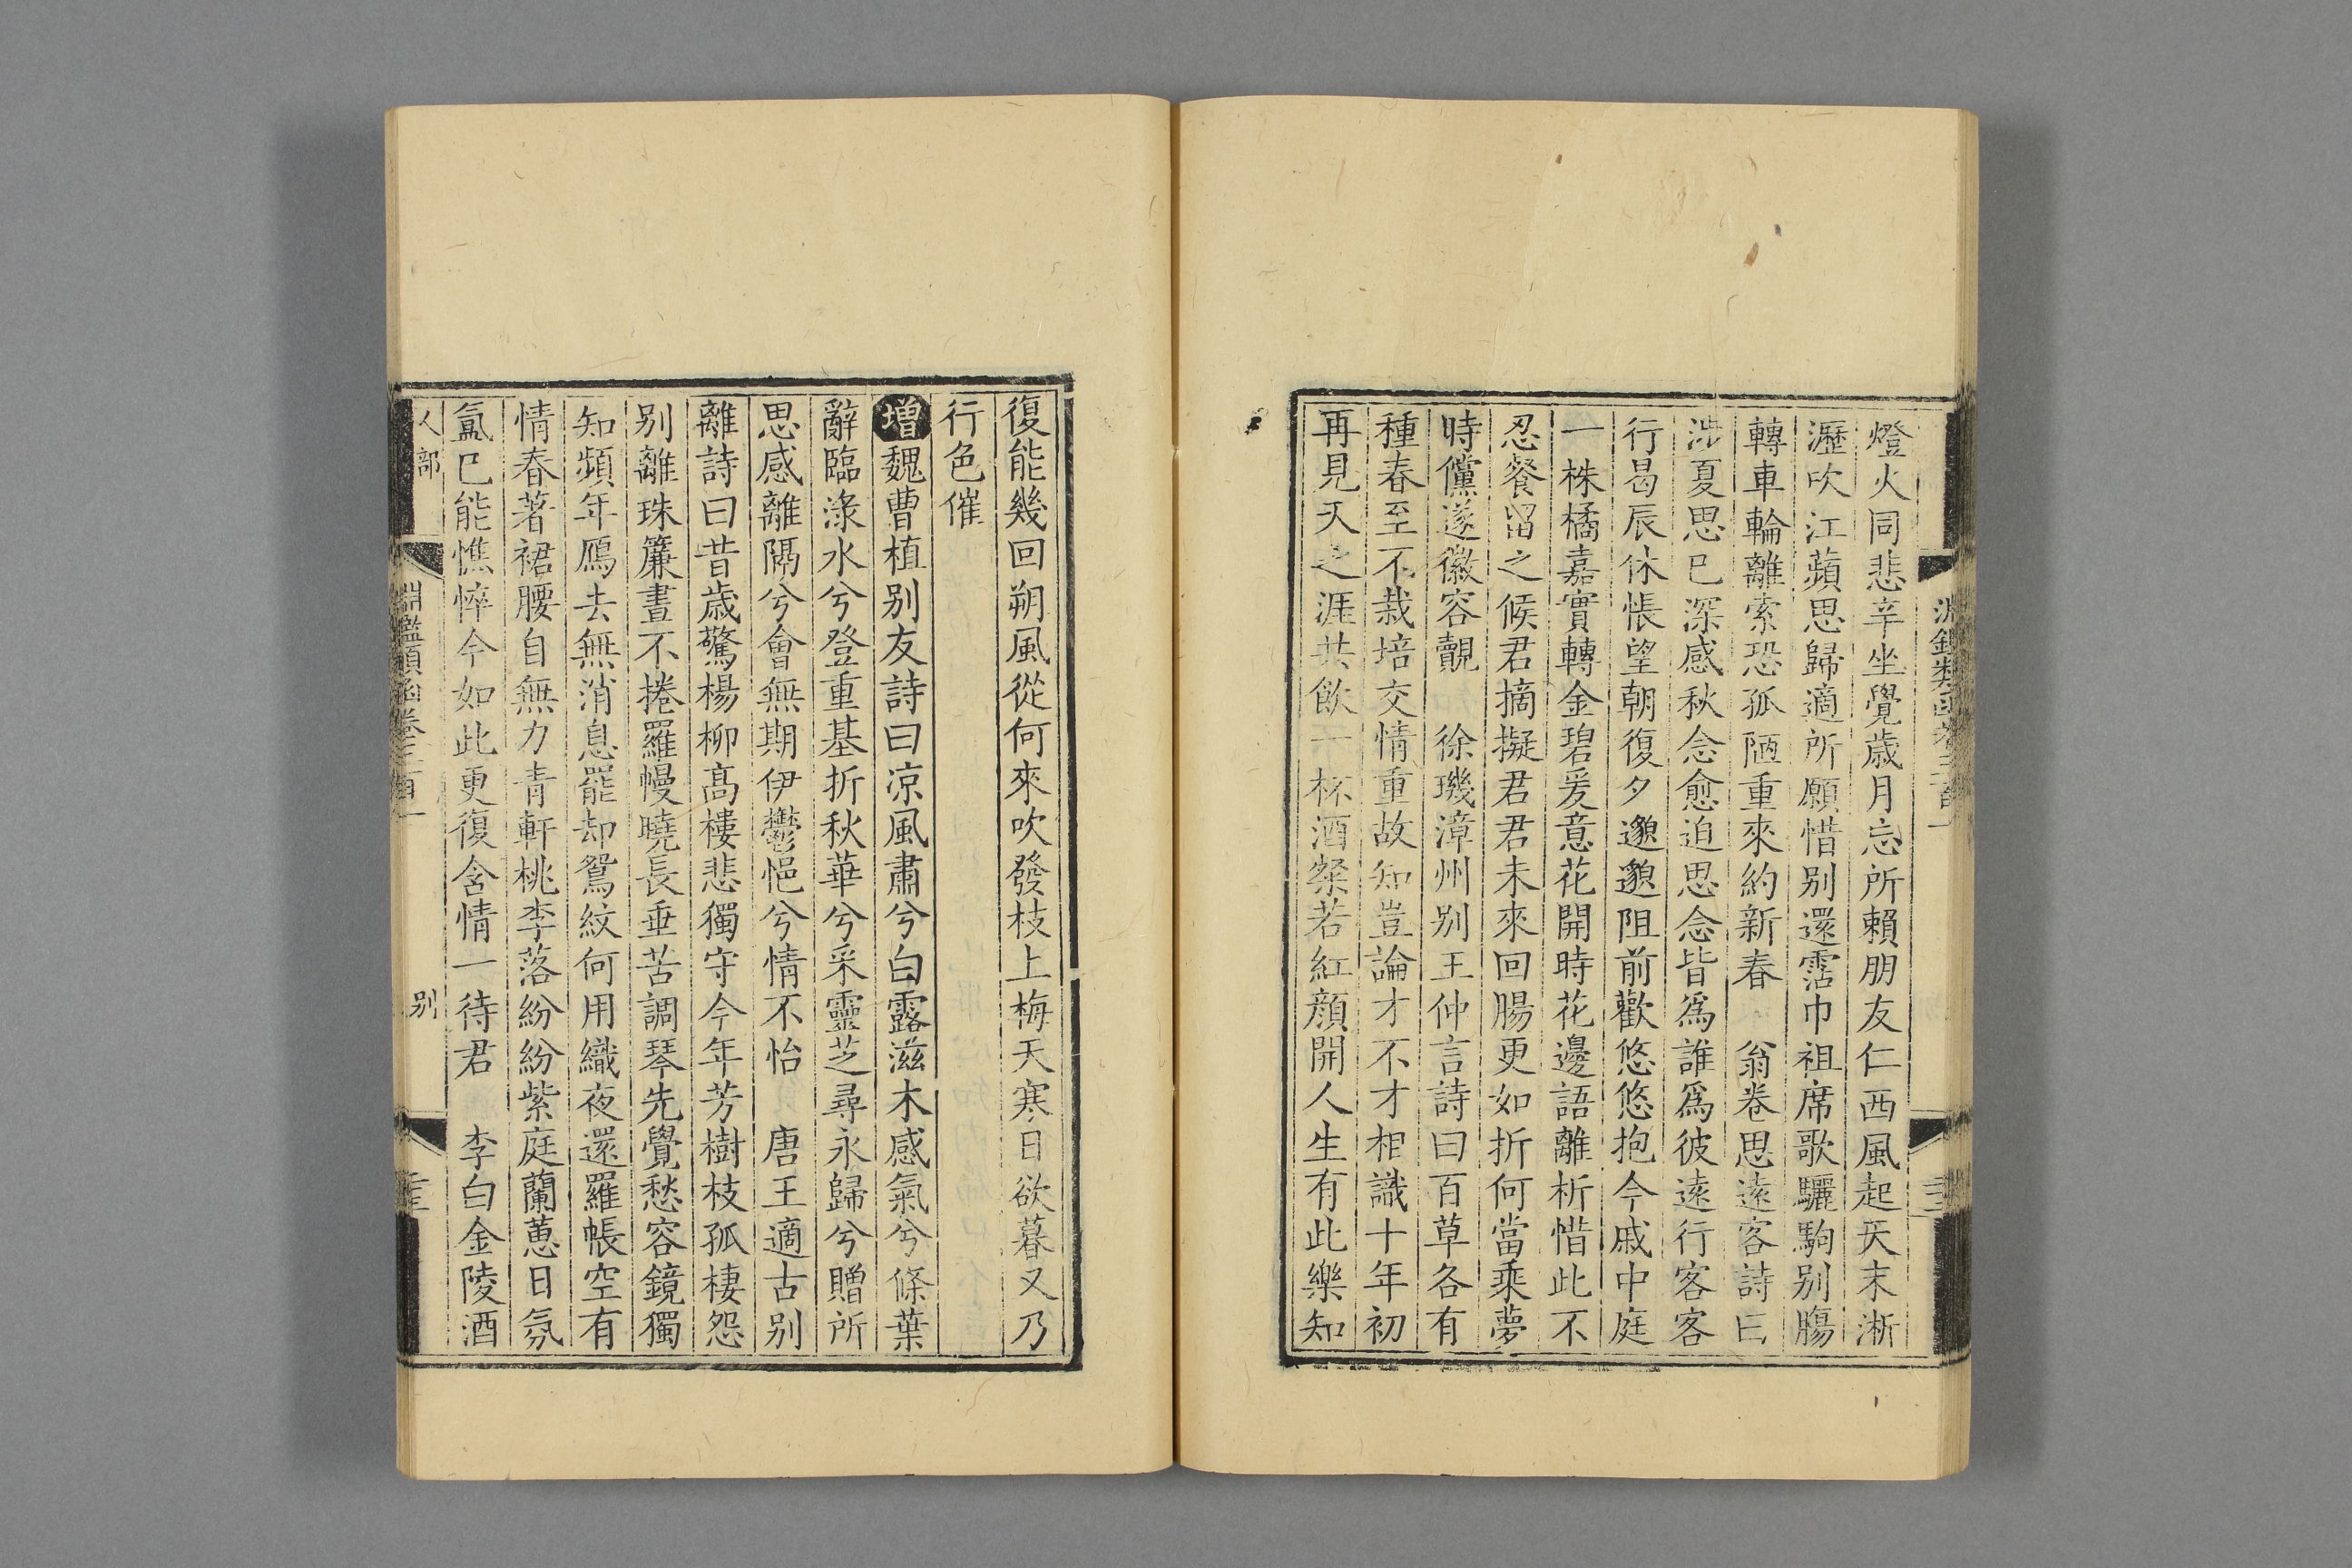 燈火同悲辛坐覺歲月忘所賴朋友仁西風起天末淅
瀝吹江蘋思歸適所願惜別還霑巾祖席歌驪駒别膓
轉車輪離索恐孤陋重來約新春　翁卷思遠客詩曰
涉夏思已深感秋念愈迫思念皆爲誰爲彼遠行客客
行曷辰休悵望朝復夕邈邈阻前歡悠悠抱今戚中庭
一株橘嘉實轉金碧爰意花開時花邊語離析惜此不
忍餐留之候君摘擬君君未來回腸更如折何當乘夢
時儻遂徽容覿　徐璣漳州别王仲言詩曰百草各有
種春至不栽培交情重故知豈論才不才相識十年初
再見天之涯共飲一杯酒粲若紅顔開人生有此樂知
復能幾回朔風從何來吹發枝上梅天寒日欲暮又乃
行色催
增魏曹植别友詩曰凉風肅兮白露滋木感氣兮條葉
辭臨淥水兮登重基折秋華兮采靈芝尋永歸兮贈所
思感離隔兮會無期伊鬱悒兮情不怡　唐王適古别
離詩曰昔歲驚楊柳高樓悲獨守今年芳樹枝孤棲怨
别離珠簾晝不捲羅幔曉長垂苦調琴先覺愁容鏡獨
知頻年鴈去無消息罷却鴛紋何用織夜還羅帳空有
情春著裙腰自無力青軒桃李落紛紛紫庭蘭蕙日氛
氳已能憔悴今如此更復含情一待君　李白金陵酒
人部
淵鑑類函卷三百一
别